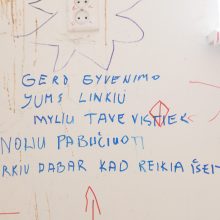 GERO GYVENIMO
JUMS LINKIU
MYLIU TAVE VISTIEK
NORIU PABUČIUOTI
RKIU DABAR KAD REIKIA IŠEI